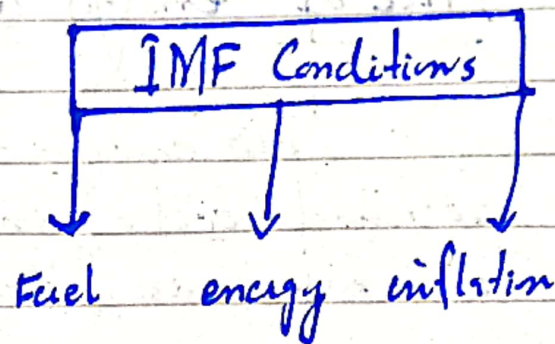 IMF Conditions
Fuel energy inflation